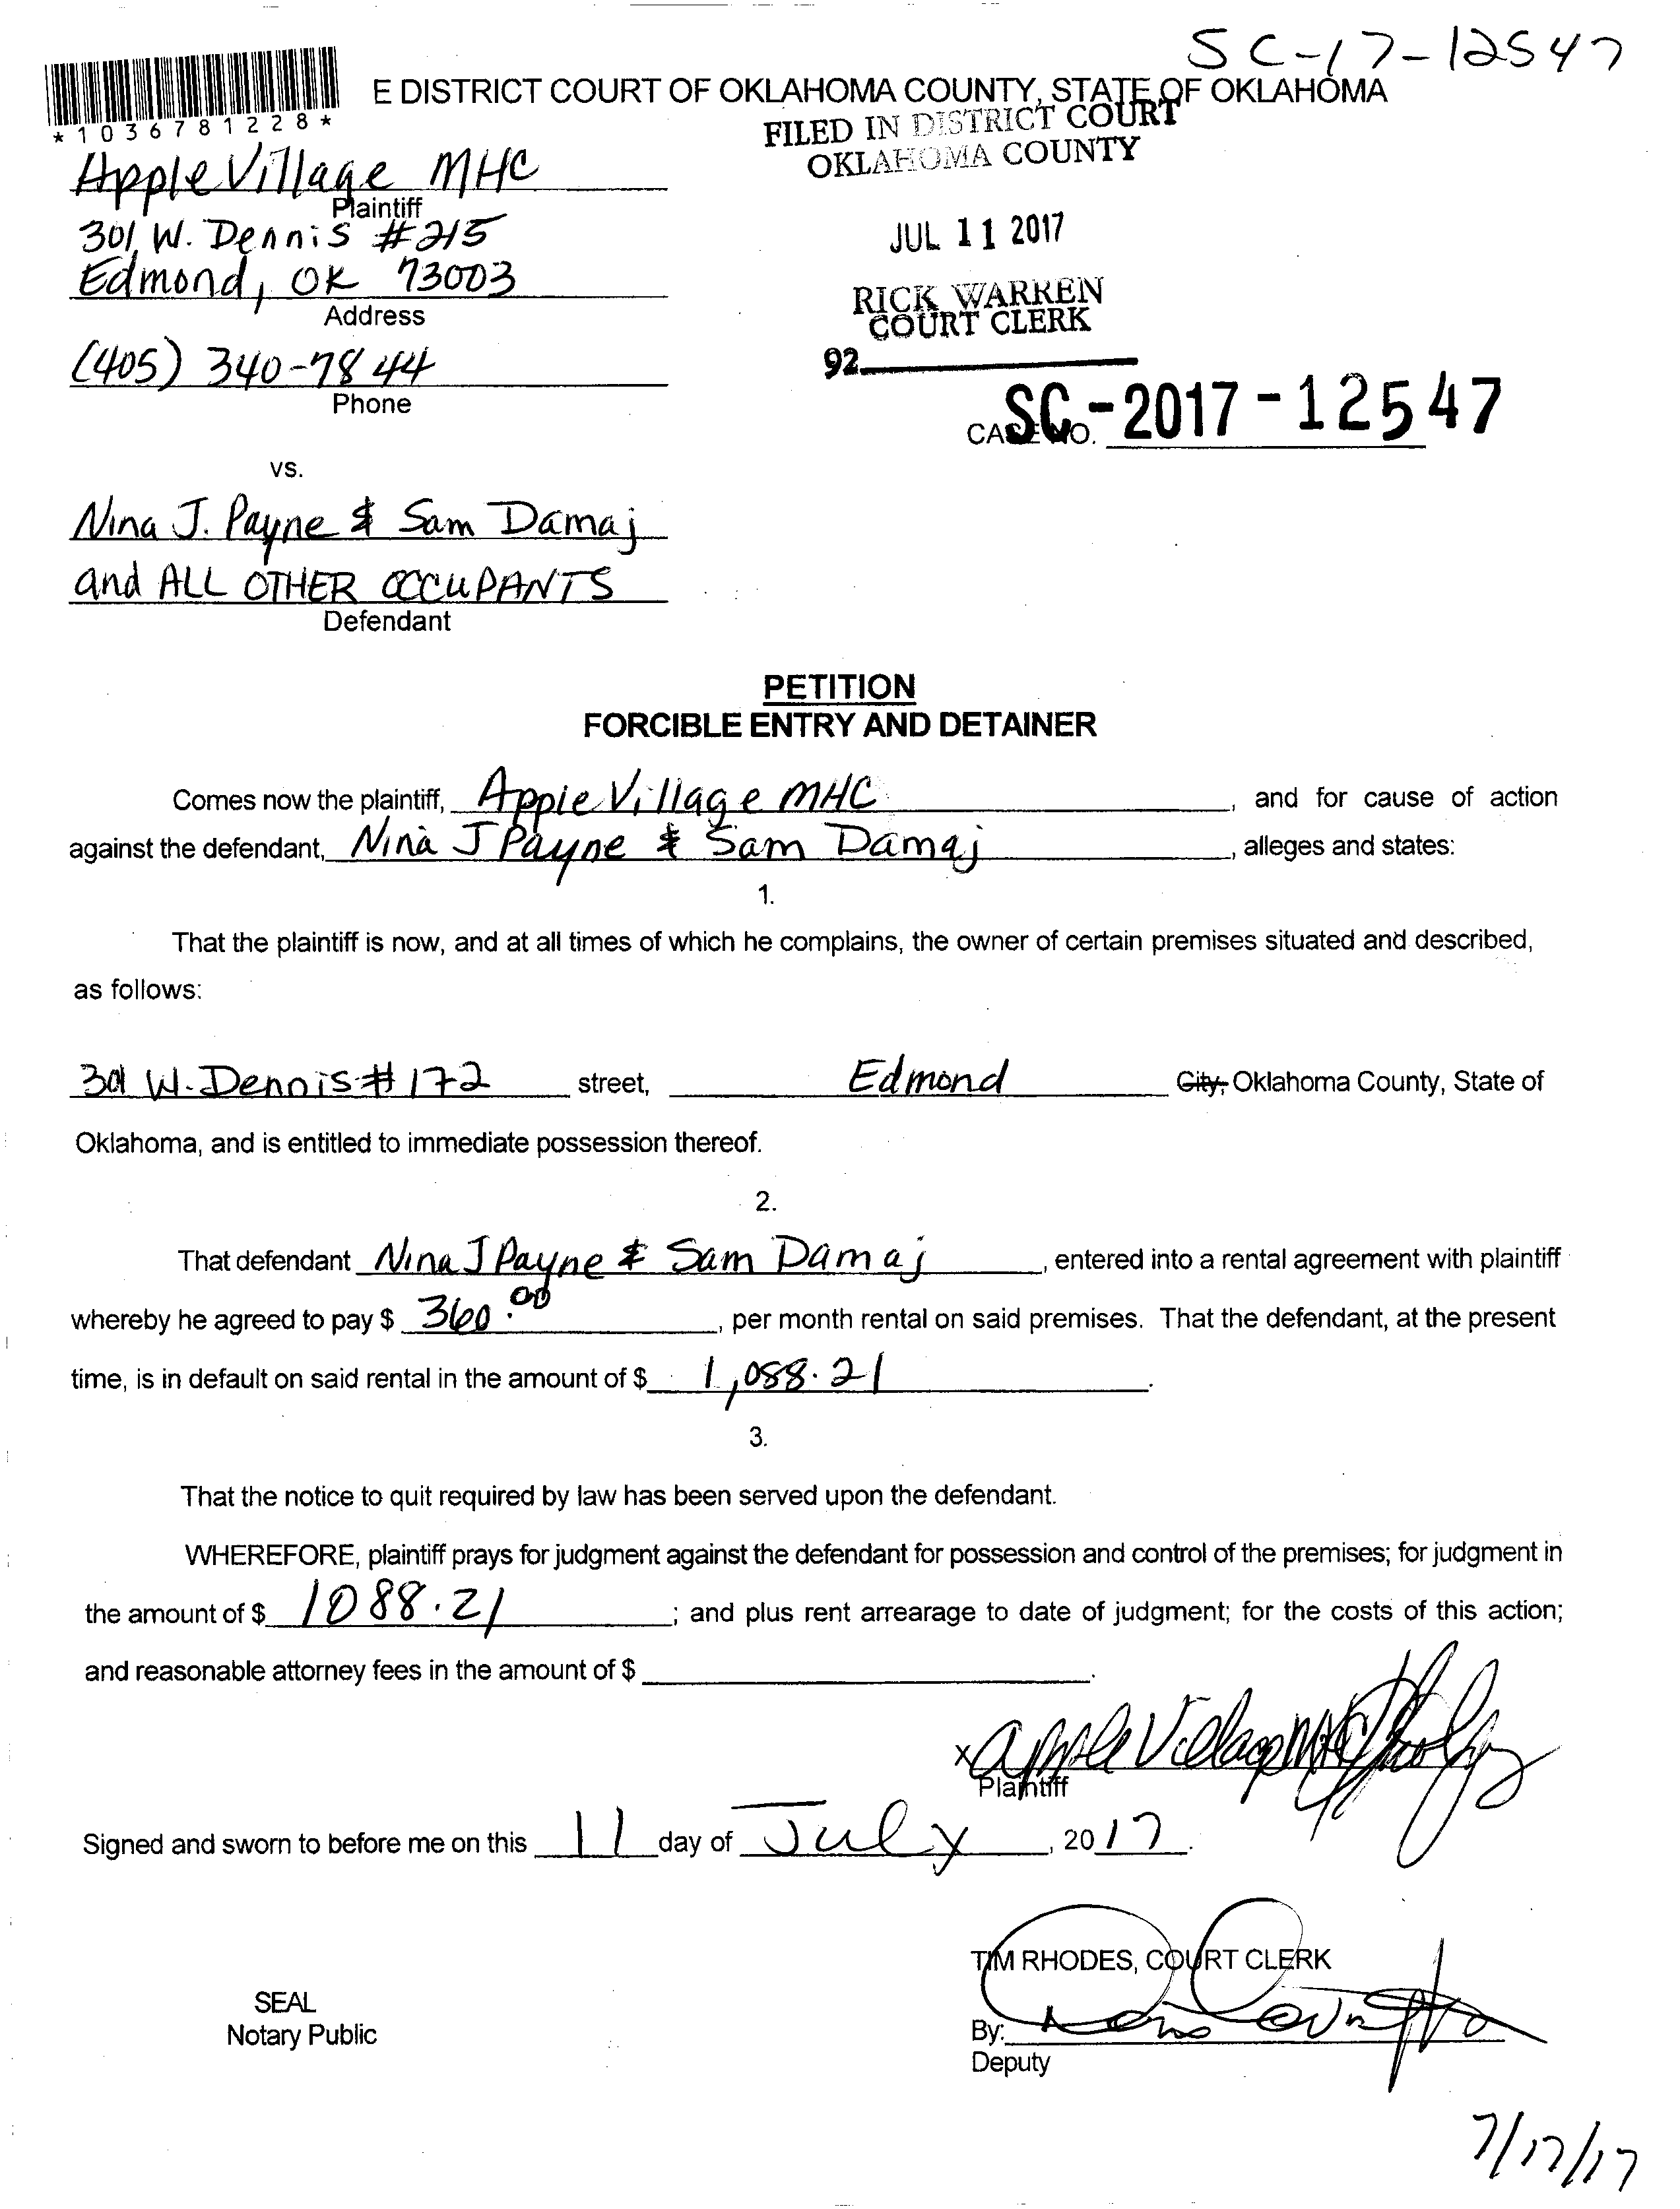 SC-17-12547
E DISTRICT COURT OF OKLAHOMA COUNTY, STATE OF OKLAHOMA
*1036781228*
FILED IN DISTRICT COURT
OKLAHOMA COUNTY
Apple Village MHC
Plaintiff
301 W. Dennis #215
Edmond, OK 73003
Address
JUL 11 2017
RICK WARREN
COURT CLERK
92
(405) 340-7844
Phone
CASE NO. SC-2017-12547
vs.
Nina J. Payne & Sam Damaj
and ALL OTHER OCCUPANTS
Defendant
PETITION
FORCIBLE ENTRY AND DETAINER
Comes now the plaintiff, Apple Village MHC, and for cause of action
against the defendant, Nina J Payne & Sam Damaj, alleges and states:
1.
That the plaintiff is now, and at all times of which he complains, the owner of certain premises situated and described,
as follows:
301 W. Dennis #172 street, Edmond City, Oklahoma County, State of
Oklahoma, and is entitled to immediate possession thereof.
2.
That defendant Nina J Payne & Sam Damaj, entered into a rental agreement with plaintiff
whereby he agreed to pay $ 360.00, per month rental on said premises. That the defendant, at the present
time, is in default on said rental in the amount of $ 1,088.21.
3.
That the notice to quit required by law has been served upon the defendant.
WHEREFORE, plaintiff prays for judgment against the defendant for possession and control of the premises; for judgment in
the amount of $ 1088.21; and plus rent arrearage to date of judgment; for the costs of this action;
and reasonable attorney fees in the amount of $ .
x Apple Village MHC
Plaintiff
Signed and sworn to before me on this 11 day of July, 2017.
TIM RHODES, COURT CLERK
SEAL
Notary Public
By:
Deputy
7/17/17